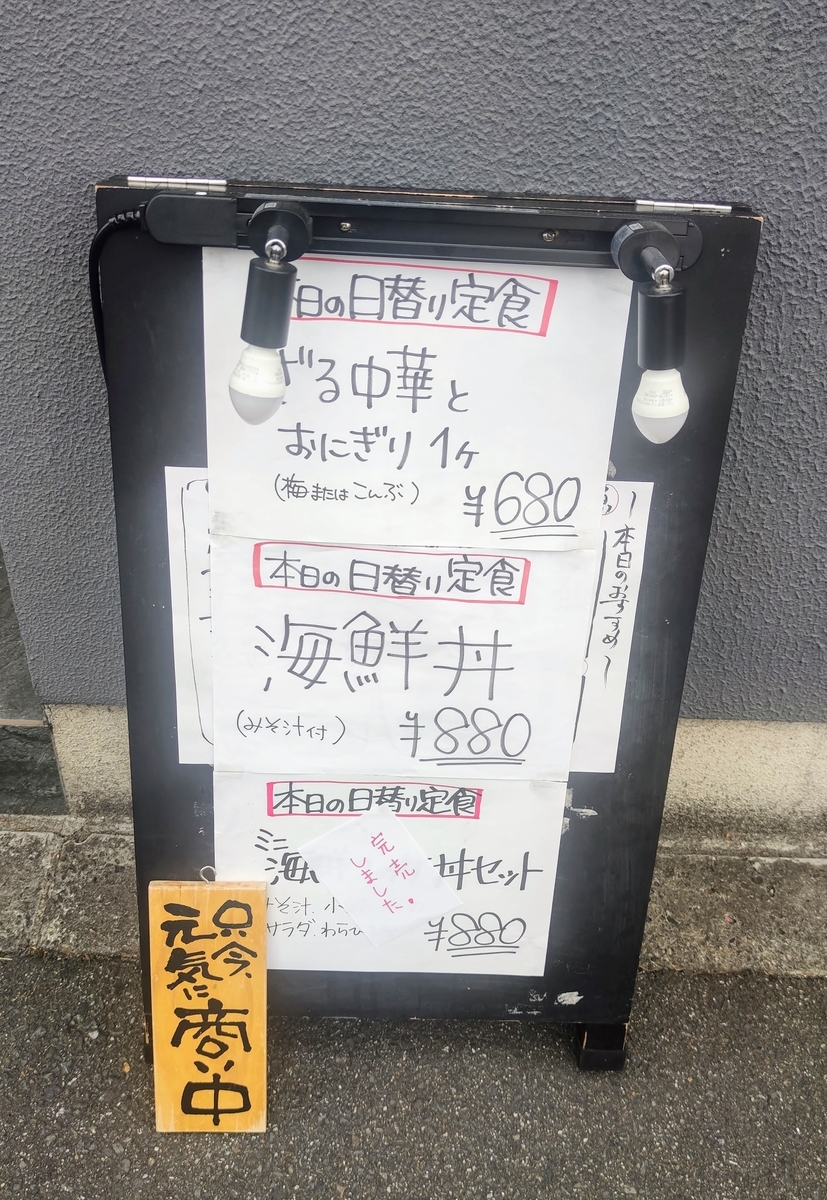 日の日替り定食
ざる中華と
おにぎり 1ヶ
(梅またはこんぶ)
¥680
本日の日替り定食
海鮮丼
(みそ汁付)
¥880
本日の日替り定食
ミニ
海 丼セット
みそ汁、小
サラダ、わらび
¥880
完売
しました。
本日のおすすめ
只今、
元気に
商い中